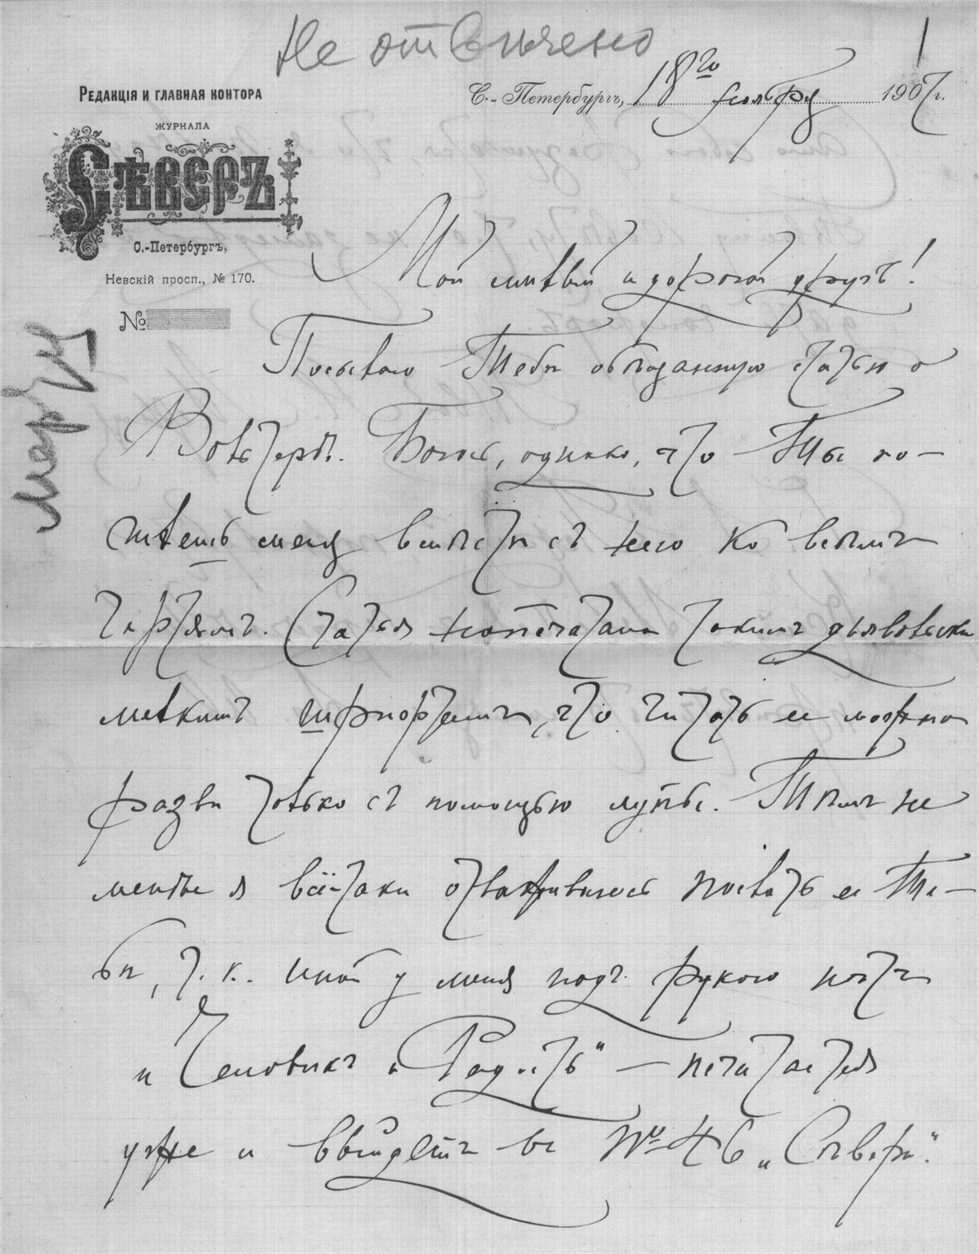 Не отвѣчено
1
Редакція и главная контора
журнала
Сѣверъ
С.-Петербургъ,
Невскій просп., № 170.
№
С.-Петербургъ, 18го ноября 1907 г.
Мой милый и дорогой другъ!
Посылаю Тебѣ обѣщанную статью о
Вольтерѣ. Боюсь, однако, что Ты по-
шлешь меня вмѣстѣ съ нею ко всѣмъ
чертямъ. Статья напечатана такимъ дьявольски
мелкимъ шрифтомъ, что читать ее можно
развѣ только съ помощью лупы. Тѣмъ не
менѣе я всё-таки отваживаюсь послать ее Те-
бѣ, т. к. иной у меня подъ рукою нѣтъ
и Человѣкъ и Радость" — печатается
уже и выйдетъ въ № 46 „Сѣвера".